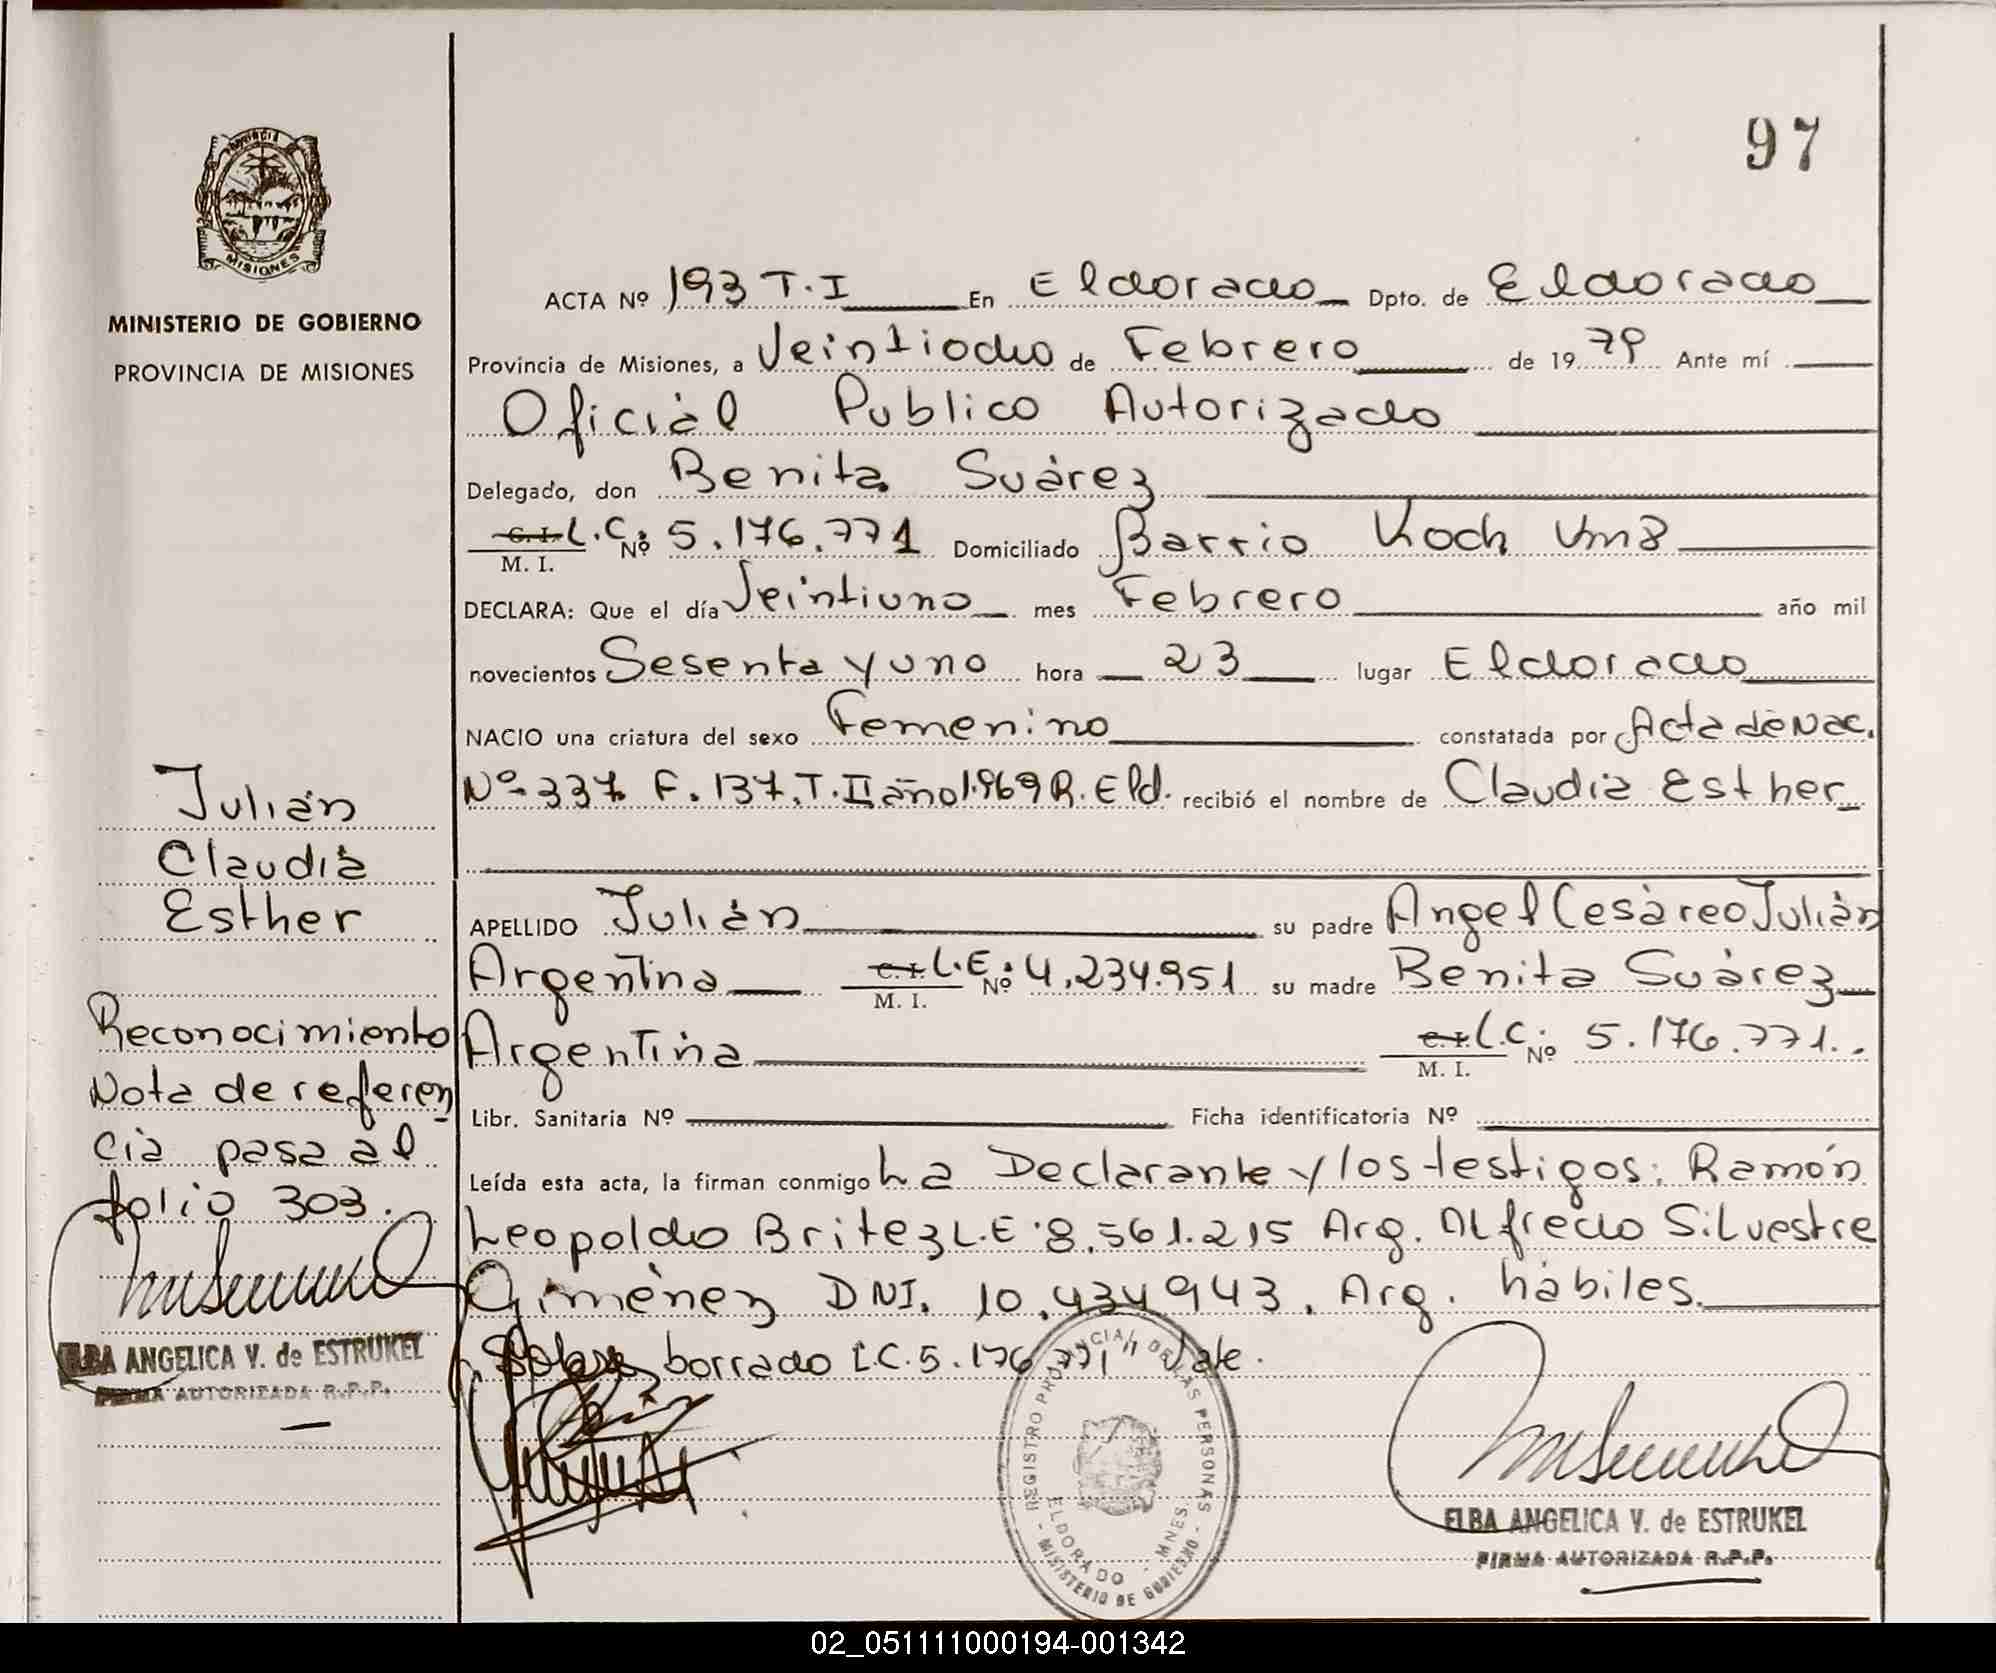 97
Provincia
MISIONES
MINISTERIO DE GOBIERNO
PROVINCIA DE MISIONES
ACTA Nº 193 T.I En Eldorado Dpto. de Eldorado
Provincia de Misiones, a Veintiocho de Febrero de 1979 Ante mí
Oficial Publico Autorizado
Delegado, don Benita Suárez
C.I. L.C. M.I. Nº 5.176.771 Domiciliado Barrio Koch Km8
DECLARA: Que el día Veintiuno mes Febrero año mil
novecientos Sesenta y uno hora 23 lugar Eldorado
NACIO una criatura del sexo Femenino constatada por Acta de Nac.
Nº 337 F. 137. T. II año 1.969 R. Eld. recibió el nombre de Claudia Esther
APELLIDO Julián su padre Angel Cesáreo Julián
Argentina C.I. L.E. M.I. Nº 4.234.951 su madre Benita Suárez
Argentina C.I. L.C. M.I. Nº 5.176.771.
Libr. Sanitaria Nº Ficha identificatoria Nº
Leída esta acta, la firman conmigo La Declarante y los testigos: Ramón
Leopoldo Britez L.E. 8.561.215 Arg. Alfredo Silvestre
Giménez DNI. 10.434943. Arg. hábiles.
Sobre borrado L.C. 5.176.771 Vale.
Julián
Claudia
Esther
Reconocimiento
Nota de referen
cia pasa al
folio 303.
ELBA ANGELICA V. de ESTRUKEL
FIRMA AUTORIZADA R.P.P.
REGISTRO PROVINCIAL DE LAS PERSONAS
ELDORADO - MNES.
MINISTERIO DE GOBIERNO
ELBA ANGELICA V. de ESTRUKEL
FIRMA AUTORIZADA R.P.P.
02_051111000194-001342